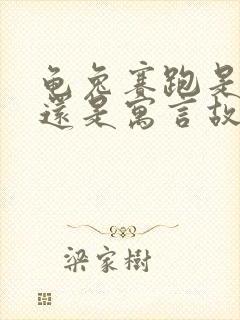 龟兔賽跑是
還是寓言故
梁家樹